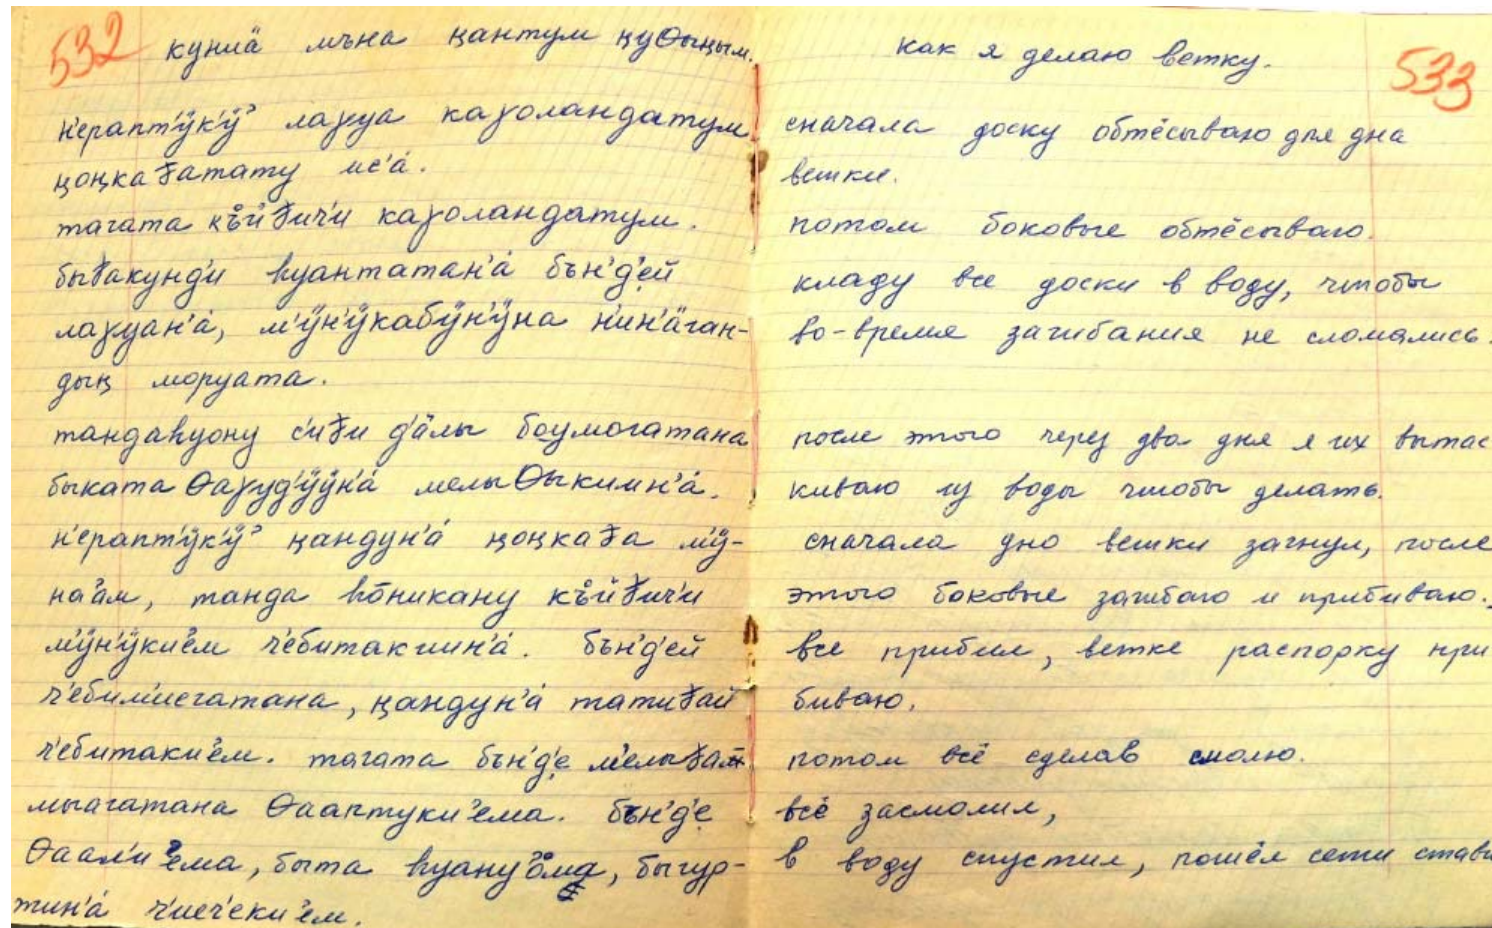 532
куниӓ мъна ӊантум ӊуѲыӊым.
н'ерапт'ӱк'ӱ' лаҗуа каҗоландатум
ӊоӊкаჵатату ис'а́.
тагата къ̊йჵич'и каҗоландатум.
быჵакунд'и һуантатан'а́ бън'д'ей
лаҗуан'а́, м'ӱн'ӱкабӱн'ӱна н'ин'ӓган-
дыӊ моруата.
тандаһуону с'иჵи д'ӓлы боумогатана
быката Ѳаҗуд'ӱӱн'а́ мелыѲыкиин'а́.
н'ерапт'ӱк'ӱ' ӊандун'а́ ӊоӊкаჵа м'ӱ-
на'ам, танда һо̄никану къ̊йჵич'и
м'ӱн'ӱки'ем ч'ебитакиин'а́. бън'д'ей
ч'ебимиегатана, ӊандун'а́ татиჵай
ч'ебитаки'ем. тагата бън'д'е
мыагатана Ѳааптуки'ема. бън'д'е
Ѳаали'ема, быта һуану'ома, быгур-
тин'а́ ч'иеч'еки'ем.
533
как я делаю ветку.
сначала доску обтёсываю для дна
ветки.
потом боковые обтёсываю.
кладу все доски в воду, чтобы
во-время загибания не сломались.
после этого через два дня я их вытас
киваю из воды чтобы делать.
сначала дно ветки загнул, после
этого боковые загибаю и прибиваю.
все прибил, ветке распорку при
биваю.
потом всё сделав смолю.
всё засмолил,
в воду спустил, пошёл сети стави